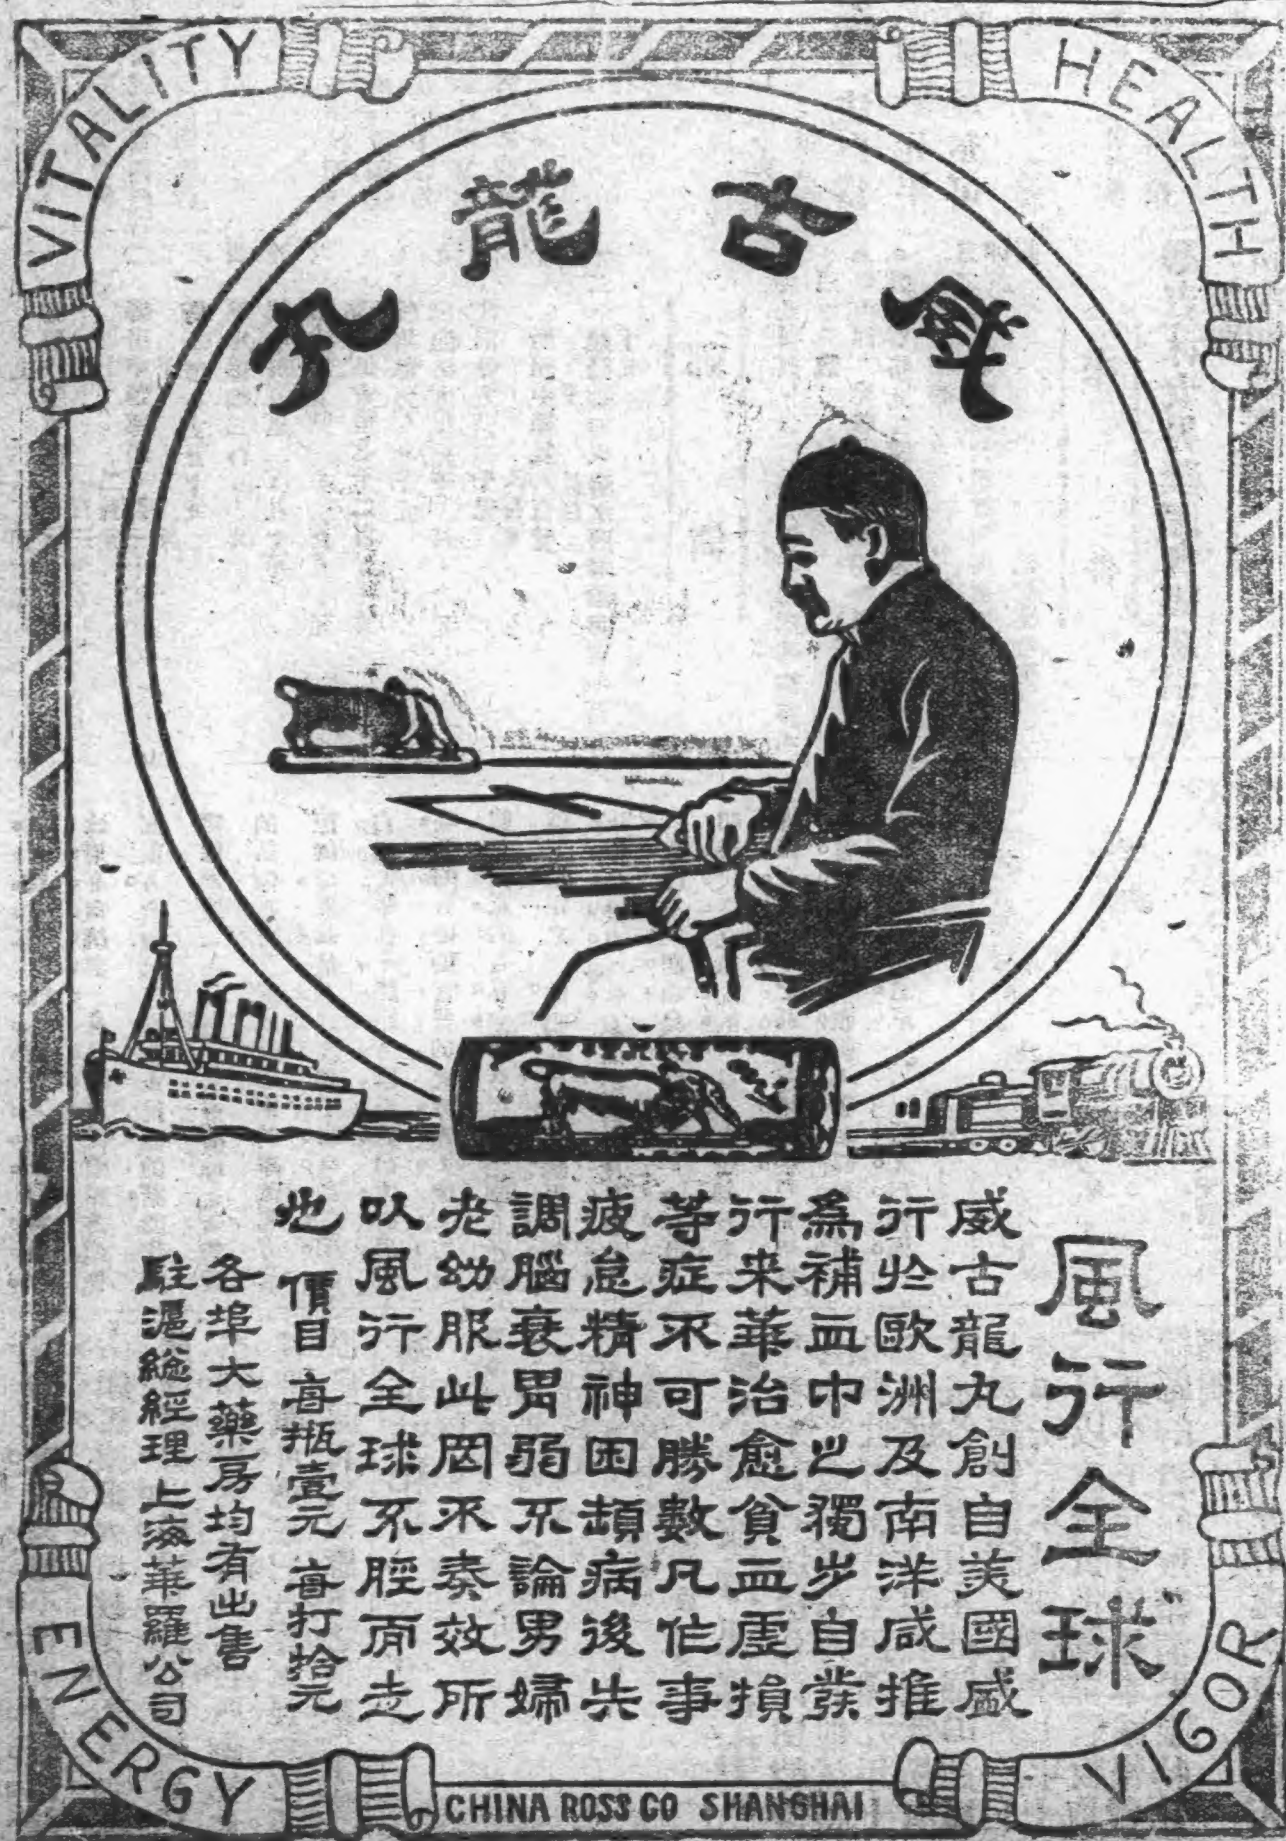 VITALITY
HEALTH
威古龍丸
風行全球
威古龍丸創自美國盛
行於歐洲及南洋咸推
爲補血中之獨步自發
行来華治愈貧血虛損
等症不可勝數凡作事
疲怠精神困頓病後失
調腦衰胃弱不論男婦
老幼服此罔不奏效所
以風行全球不脛而走
也 價目 每瓶壹元 每打拾元
各埠大藥房均有出售
駐滬總經理上海華羅公司
ENERGY
VIGOR
CHINA ROSS CO SHANGHAI